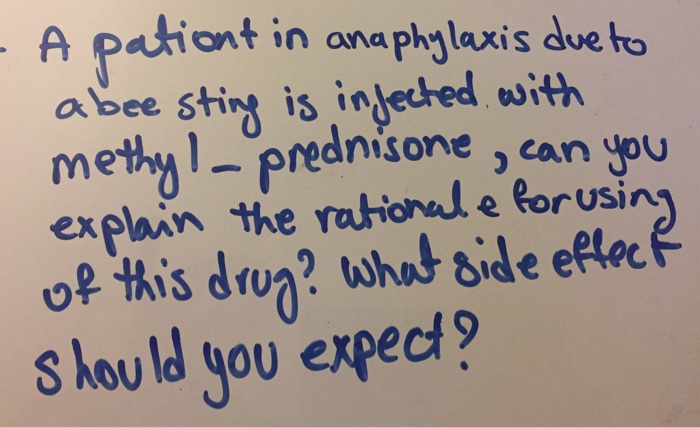 - A pationt in anaphylaxis due to
a bee sting is injected with
methyl - prednisone, can you
explain the rationale for using
of this drug? What side effect
should you expect?